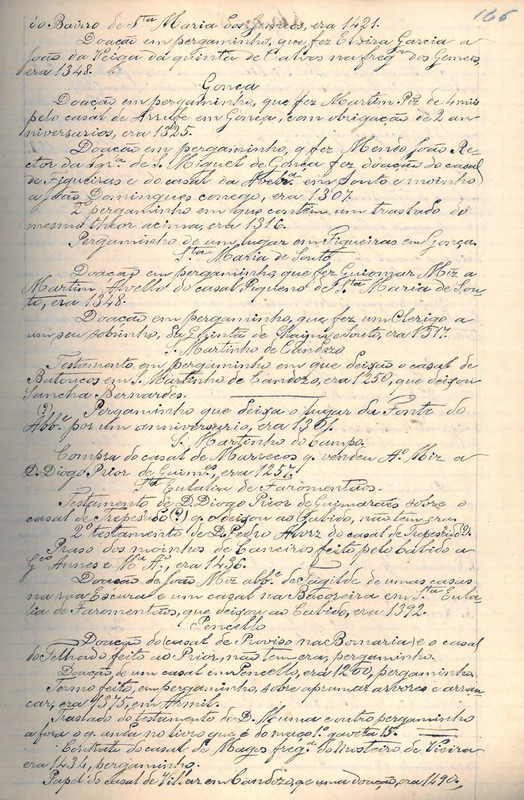 166
do Bairro de Sta Maria dos Gemeos, era 1421.
Doação em pergaminho, que fez Elvira Garcia a
João da Veiga da quinta de Calvos na fregª dos Gemeos,
era 1348.
Gonça
Doação em pergaminho, que fez Martim Piz de
pelo casal de Arrufe em Gonça, com obrigação de 2 an-
niversarios, era 1325.
Doação em pergaminho, q fez Mendo João Re-
ctor da de S. Miguel de Gonça fez doação do casal
de Figueiras e do casal da em Souto e moinho
a João Domingues conego, era 1307.
2º pergaminho em que contem um traslado do
mesmo theor acima, era 1316.
Pergaminho de um lugar em Figueiras em Gonça.
Sta Maria de Souto
Doação em pergaminho, que fez Guiomar Miz a
Martim do casal Piqueno de Sta Maria de Sou-
to, era 1348.
Doação em pergaminho, que fez um Clerigo a
um seu sobrinho, da Quinta de Souto, era 1317.
S. Martinho de Candozo
Testamento em pergaminho em que deixão o casal de
em S. Martinho de Candozo, era 1250, que deixou
Sancha Bernardes.
(?) Pergaminho que deixa o lugar da Fonte do
Abbe por um anniversario, era 13
S. Martinho do Campo.
Compra do casal de Marrecos q. vendeu Aº Miz a
D. Diogo, Prior de Guimes, era 1257.
Sta Eulalia de Faromentãos.
Testamento de D. Diogo Prior de Guimarães sobre o
casal de (?) q. deixou ao Cabido, não tem era.
2º testamento de D. Pedro do casal de
Praso dos moinhos de Caneiros feito pelo Cabido a
Gco Annes e Mª A., era 1436.
Doação de João Miz abbe de Tagilde de umas casas
na rua Escura e um casal na em Sta Eula-
lia de Faromentãos, que deixou ao Cabido, era 1392.
Pencello
Doação do (casal de Proviso na Bornaria) e o casal
do Telhado feito ao Prior, não tem era, pergaminho.
Doação de um casal em Pencello, era 1260, pergaminho.
Tomo feito, em pergaminho, sobre aprumar arvores e arran-
car, era 1345, em Asmil.
Traslado do testamento de D. Muma e outro pergaminho
a fora o q. anda no livro que é do maço 1º gaveta 15.
Contrato do casal de Magos fregª do Mosteiro de Vieira
era 1434, pergaminho.
Papel do casal de Villar em Candozo, q. e uma doação, era 1490.